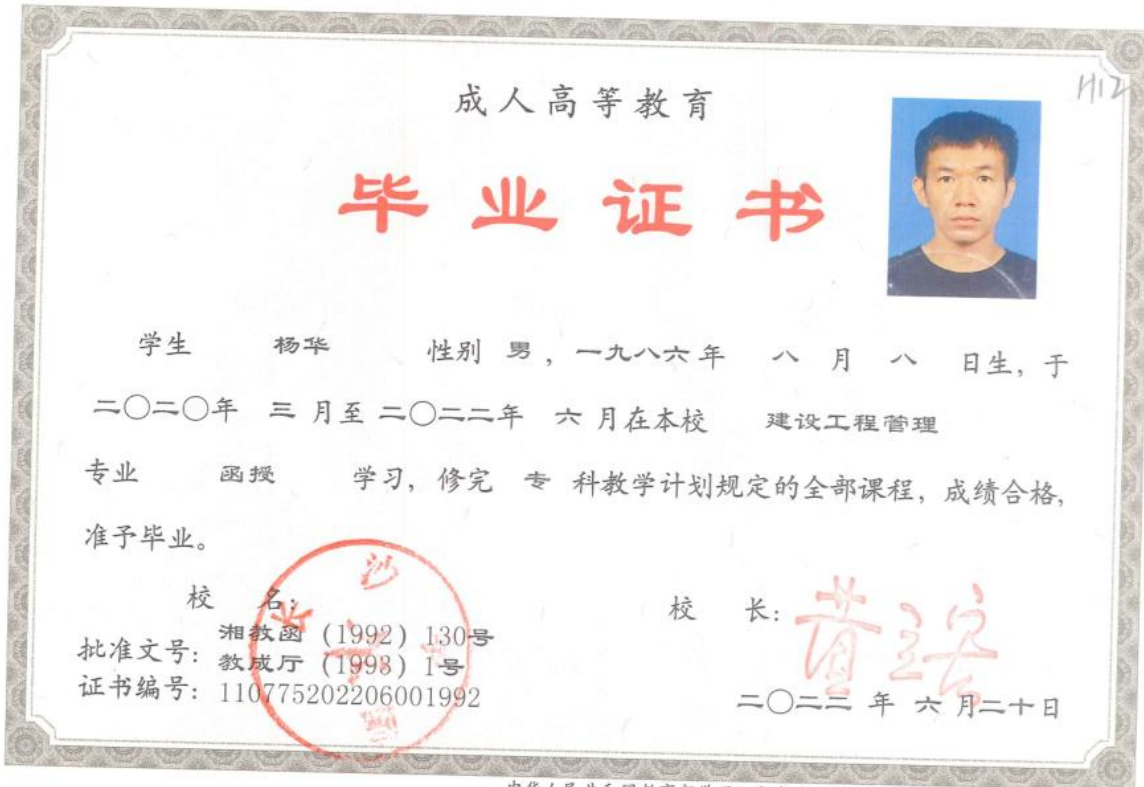 H12
成人高等教育
毕业证书
学生 杨华 性别 男，一九八六年 八 月 八 日生，于
二〇二〇年 三 月至 二〇二二年 六 月在本校 建设工程管理
专业 函授 学习，修完 专 科教学计划规定的全部课程，成绩合格，
准予毕业。
校 名：
长沙
校 长：
批准文号：湘教函 (1992) 130号
教成厅 (1993) 1号
证书编号：110775202206001992
二〇二二 年 六 月二十日